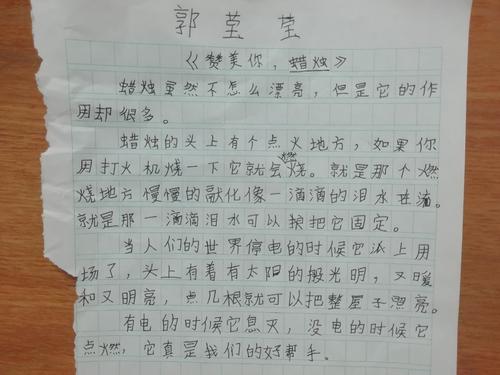 郭莹莹
《赞美你，蜡烛》
蜡烛虽然不怎么漂亮，但是它的作
用却很多。
蜡烛的头上有个点火地方，如果你
用打火机烧一下它就会燃烧。就是那个燃
烧地方慢慢的融化像一滴滴的泪水在滴。
就是那一滴滴泪水可以把它固定。
当人们的世界停电的时候它派上用
场了，头上有着有太阳的般光明，又暖
和又明亮，点几根就可以把整屋子照亮。
有电的时候它息灭，没电的时候它
点燃，它真是我们的好帮手。